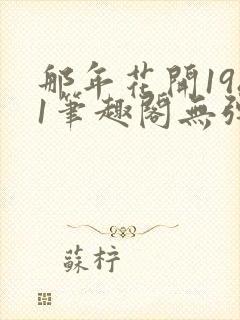 那年花開19
1筆趣閣無
蘇柠